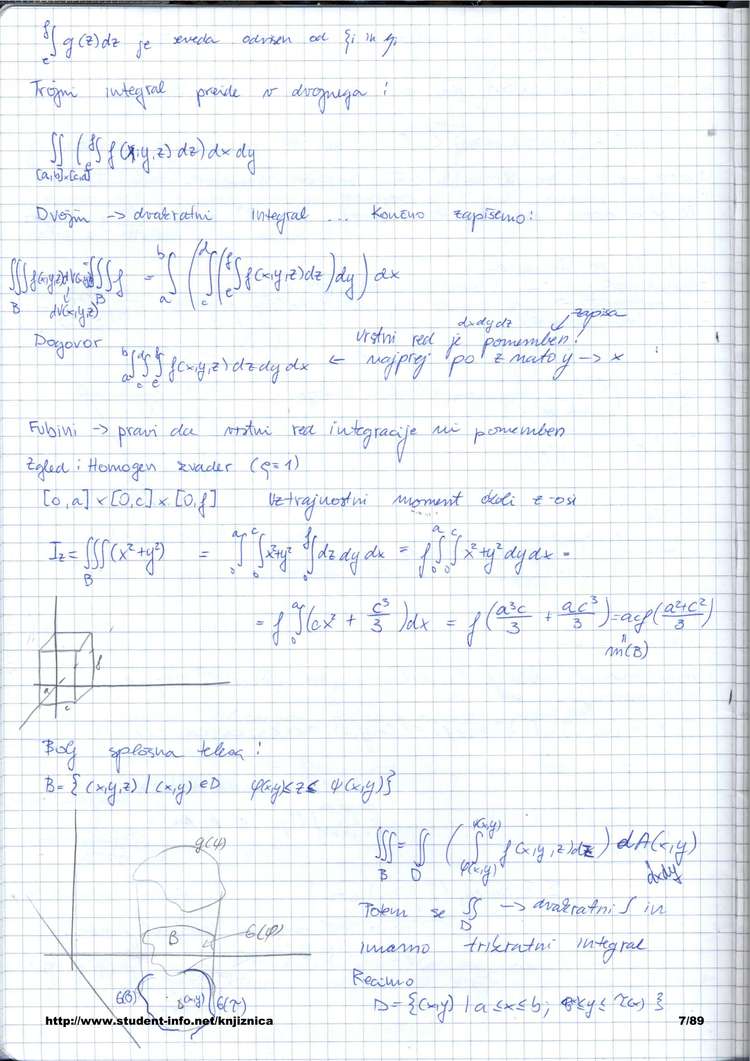 ∫_e^f g(z)dz je seveda odvisen od ξi in ηi
Trojni integral preide v dvojnega :
∬_{[a,b]×[c,d]} (∫_e^f f(x,y,z) dz) dx dy
Dvojni → dvakratni integral ... Končno zapišemo:
∭_B f(x,y,z) dV(x,y,z) = ∭_B f = ∫_a^b (∫_c^d (∫_e^f f(x,y,z)dz) dy) dx
dV(x,y,z)
dxdydz zapisa
Dogovor vrstni red je pomemben!
∫_a^b ∫_c^d ∫_e^f f(x,y,z) dz dy dx ← najprej po z nato y → x
Fubini → pravi da vrstni red integracije ni pomemben
Zgled : Homogen kvader (ρ=1)
[0,a] × [0,c] × [0,f] Vztrajnostni moment okoli z-osi
I_z = ∭_B (x²+y²) = ∫_0^a ∫_0^c x²+y² ∫_0^f dz dy dx = f ∫_0^a ∫_0^c x²+y² dy dx =
= f ∫_0^a (cx² + c³/3) dx = f (a³c/3 + ac³/3) = acf (a²+c²/3)
m(B)
a c f
Bolj splošna telesa :
B = { (x,y,z) | (x,y) ∈ D φ(x,y) ≤ z ≤ ψ(x,y) }
∭_B = ∬_D ( ∫_{φ(x,y)}^{ψ(x,y)} f(x,y,z) dz ) dA(x,y)
dxdy
g(ψ)
B G(φ)
Potem se ∬_D → dvakratni ∫ in
imamo trikratni integral
Recimo
G(τ)
D = { (x,y) | a ≤ x ≤ b; ≤ y ≤ τ(x) }
http://www.student-info.net/knjiznica 7/89